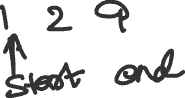 1 2 9
Start end